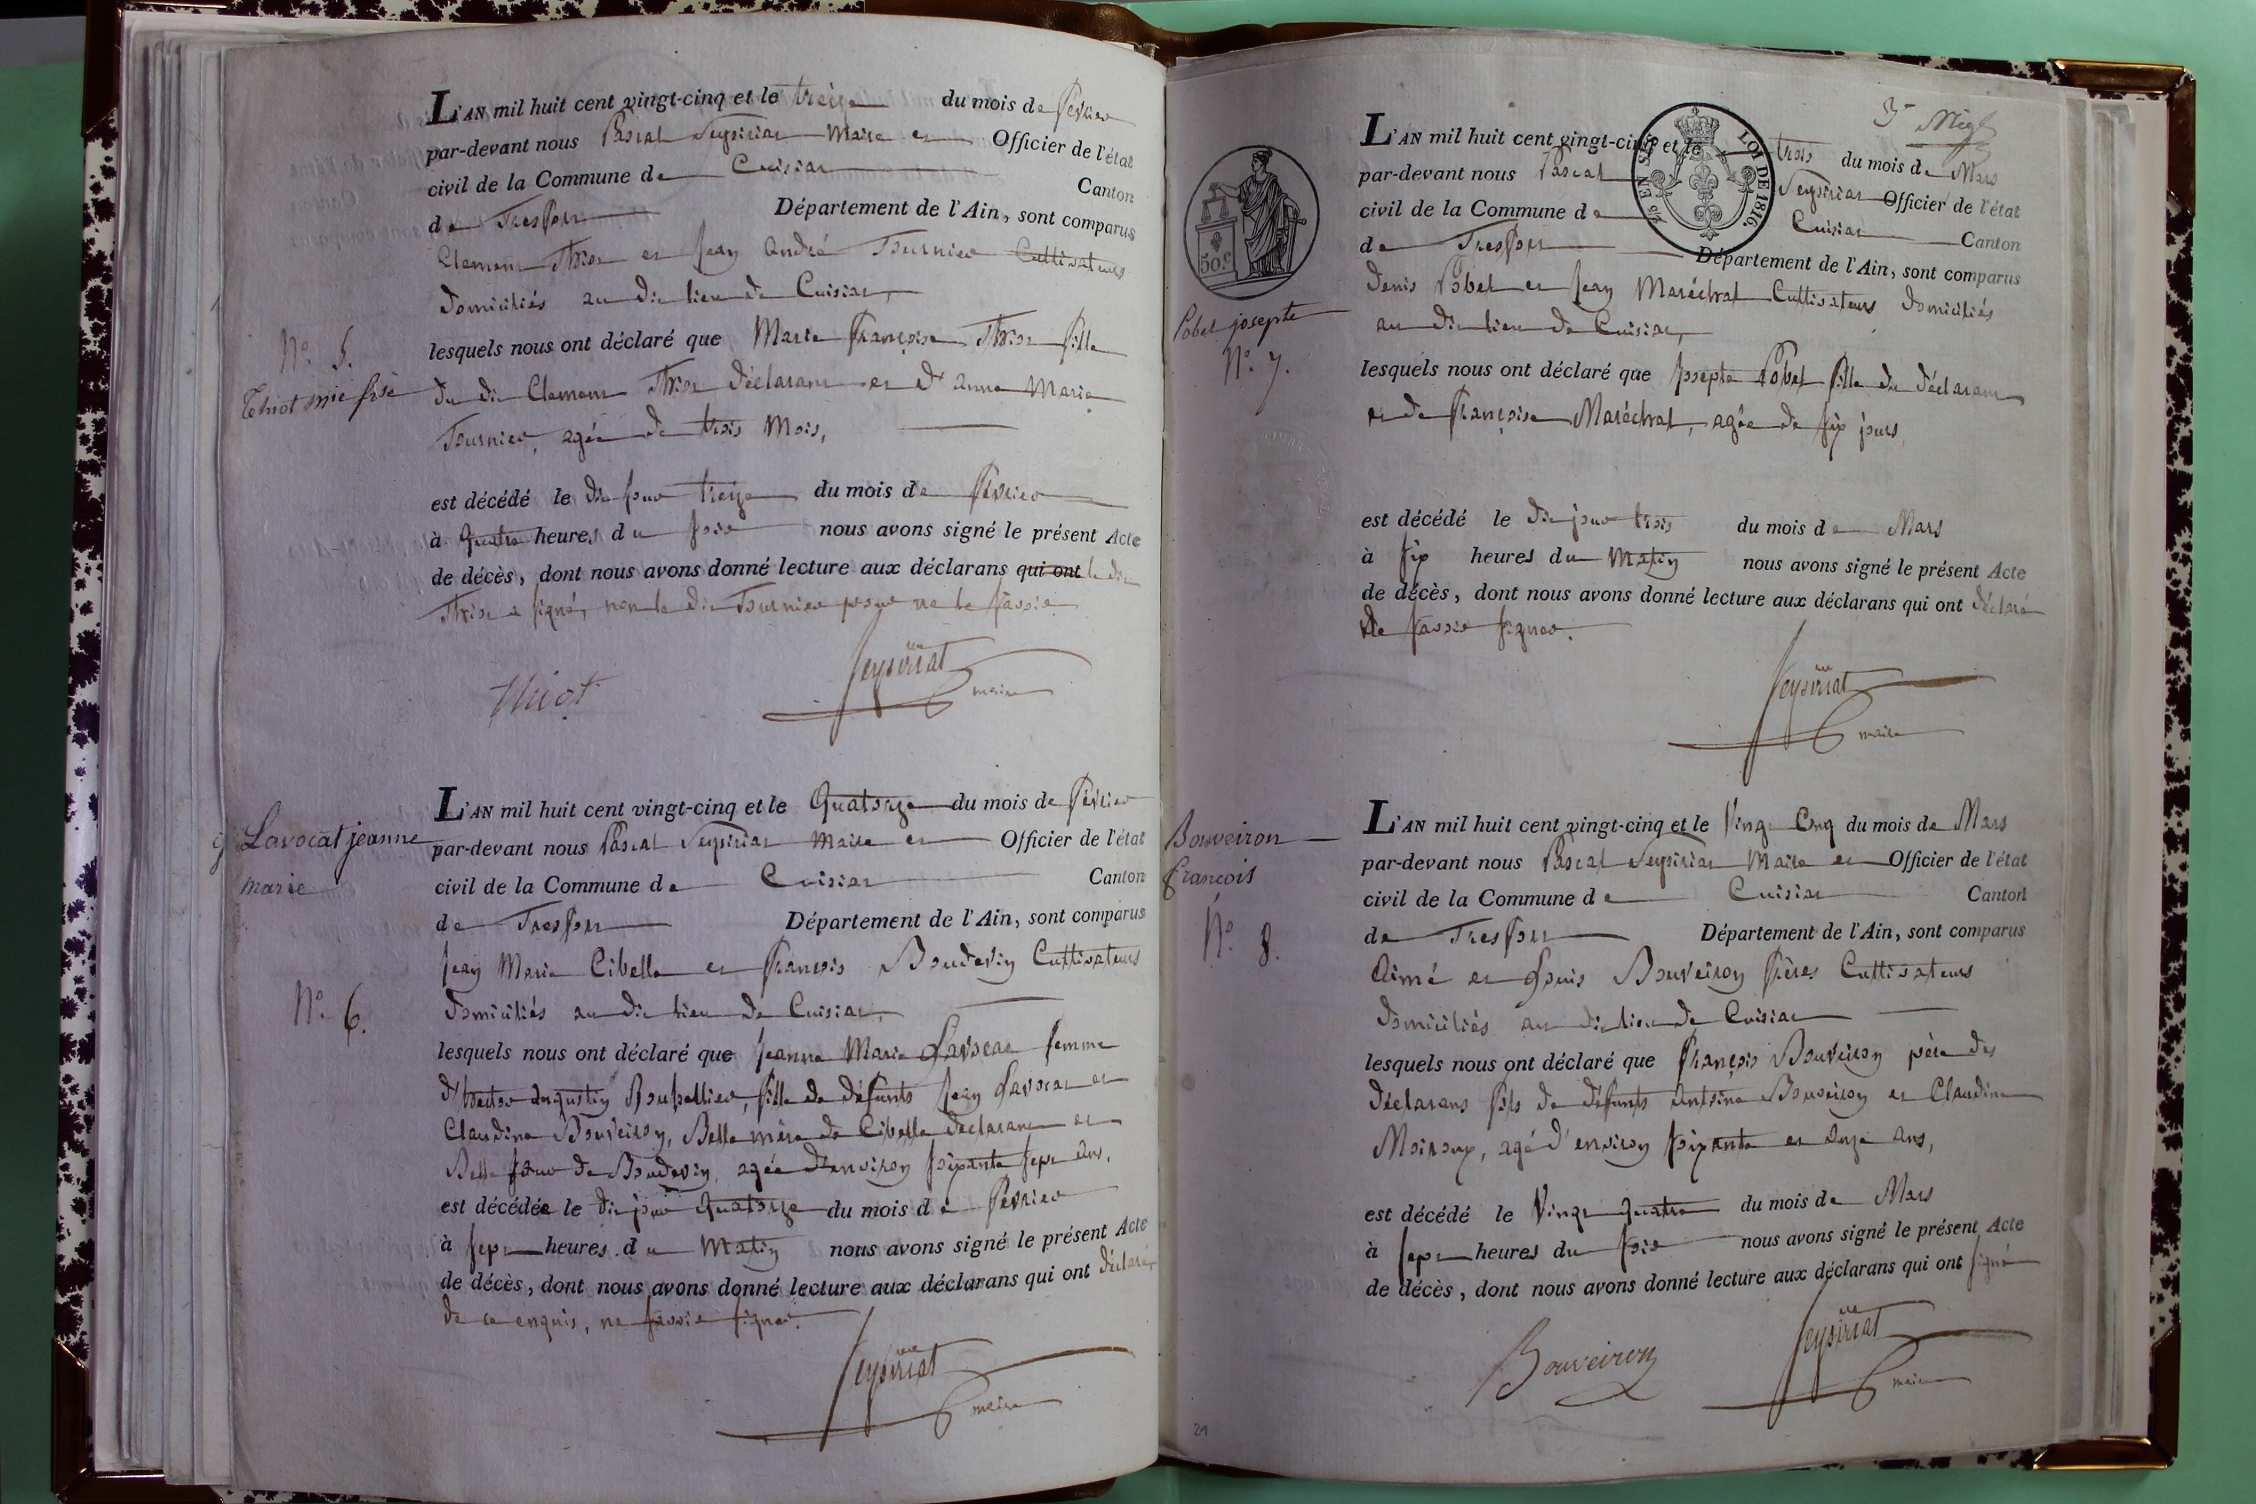 L'AN mil huit cent vingt-cinq et le treize du mois de février
par-devant nous Pascal Seysiriat Maire et Officier de l'état
civil de la Commune de Cuisiat Canton
de Treffort Département de l'Ain, sont comparus
Clement Thiot et Jean André Tournier Cultivateurs
domiciliés au dit lieu de Cuisiat,
N° 5.
lesquels nous ont déclaré que Marie Françoise Thiot fille
Thiot mie fse
du dit Clement Thiot déclarant et d'anne Marie
Tournier, agée de trois Mois,
est décédé le dit jour treize du mois de février
à Quatre heures du soir nous avons signé le présent Acte
de décès, dont nous avons donné lecture aux déclarans qui ont le dit
Thiot a signé, non le dit Tournier pour ne le savoir
Thiot
Seysiriat
maire
L'AN mil huit cent vingt-cinq et le Quatorze du mois de février
Lavocat jeanne
marie
par-devant nous Pascal Seysiriat Maire et Officier de l'état
civil de la Commune de Cuisiat Canton
de Treffort Département de l'Ain, sont comparus
Jean Marie Cibelle et François Boudevin Cultivateurs
N° 6.
domiciliés au dit lieu de Cuisiat,
lesquels nous ont déclaré que Jeanne Marie Lavocat femme
d'hector augustin, fille de défunts Jean Lavocat et
Claudine Bouveiron, Belle mère de Cibelle déclarant et
Belle sœur de Boudevin, agée d'environ soixante sept ans,
est décédée le dit jour Quatorze du mois de février
à sept heures du Matin nous avons signé le présent Acte
de décès, dont nous avons donné lecture aux déclarans qui ont déclaré,
de ce enquis, ne savoir signer.
Seysiriat
maire
50 c
25 EN SUS LOI DE 1816.
L'AN mil huit cent vingt-cinq et le trois du mois de Mars
par-devant nous Pascal Seysiriat Officier de l'état
civil de la Commune de Cuisiat Canton
de Treffort Département de l'Ain, sont comparus
Denis Pobel et Jean Maréchal Cultivateurs domiciliés
Pobel josepte
au dit lieu de Cuisiat,
N° 7.
lesquels nous ont déclaré que Josepte Pobel fille du déclarant
et de Françoise Maréchal, agée de six jours,
est décédé le dit jour trois du mois de Mars
à six heures du Matin nous avons signé le présent Acte
de décès, dont nous avons donné lecture aux déclarans qui ont déclaré
Ne savoir signer.
Seysiriat
maire
L'AN mil huit cent vingt-cinq et le Vingt Cinq du mois de Mars
Bouveiron
françois
par-devant nous Pascal Seysiriat Maire et Officier de l'état
civil de la Commune de Cuisiat Canton
N° 8.
de Treffort Département de l'Ain, sont comparus
Aimé et Louis Bouveiron frères Cultivateurs
domiciliés au dit lieu de Cuisiat
lesquels nous ont déclaré que François Bouveiron père des
déclarans fils de défunts Antoine Bouveiron et Claudine
Moiroux, agé d'environ soixante et onze ans,
est décédé le Vingt Quatre du mois de Mars
à sept heures du soir nous avons signé le présent Acte
de décès, dont nous avons donné lecture aux déclarans qui ont signé
Bouveiron
Seysiriat
maire
21